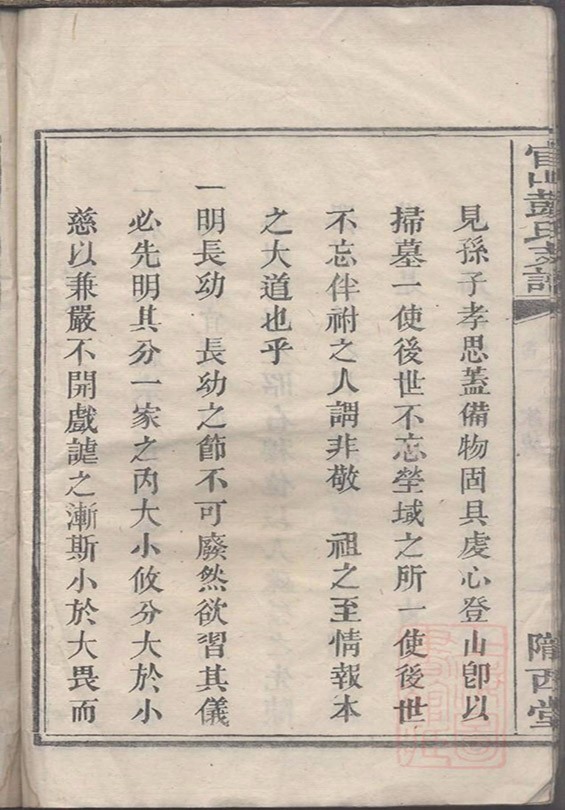 官山彭氏支譜
隴西堂
見孫子孝思蓋備物固具虔心登山卽以
掃墓一使後世不忘塋域之所一使後世
不忘伴祔之人謂非敬　祖之至情報本
之大道也乎
一明長幼　長幼之節不可廢然欲習其儀
必先明其分一家之內大小攸分大於小
慈以兼嚴不開戲謔之漸斯小於大畏而